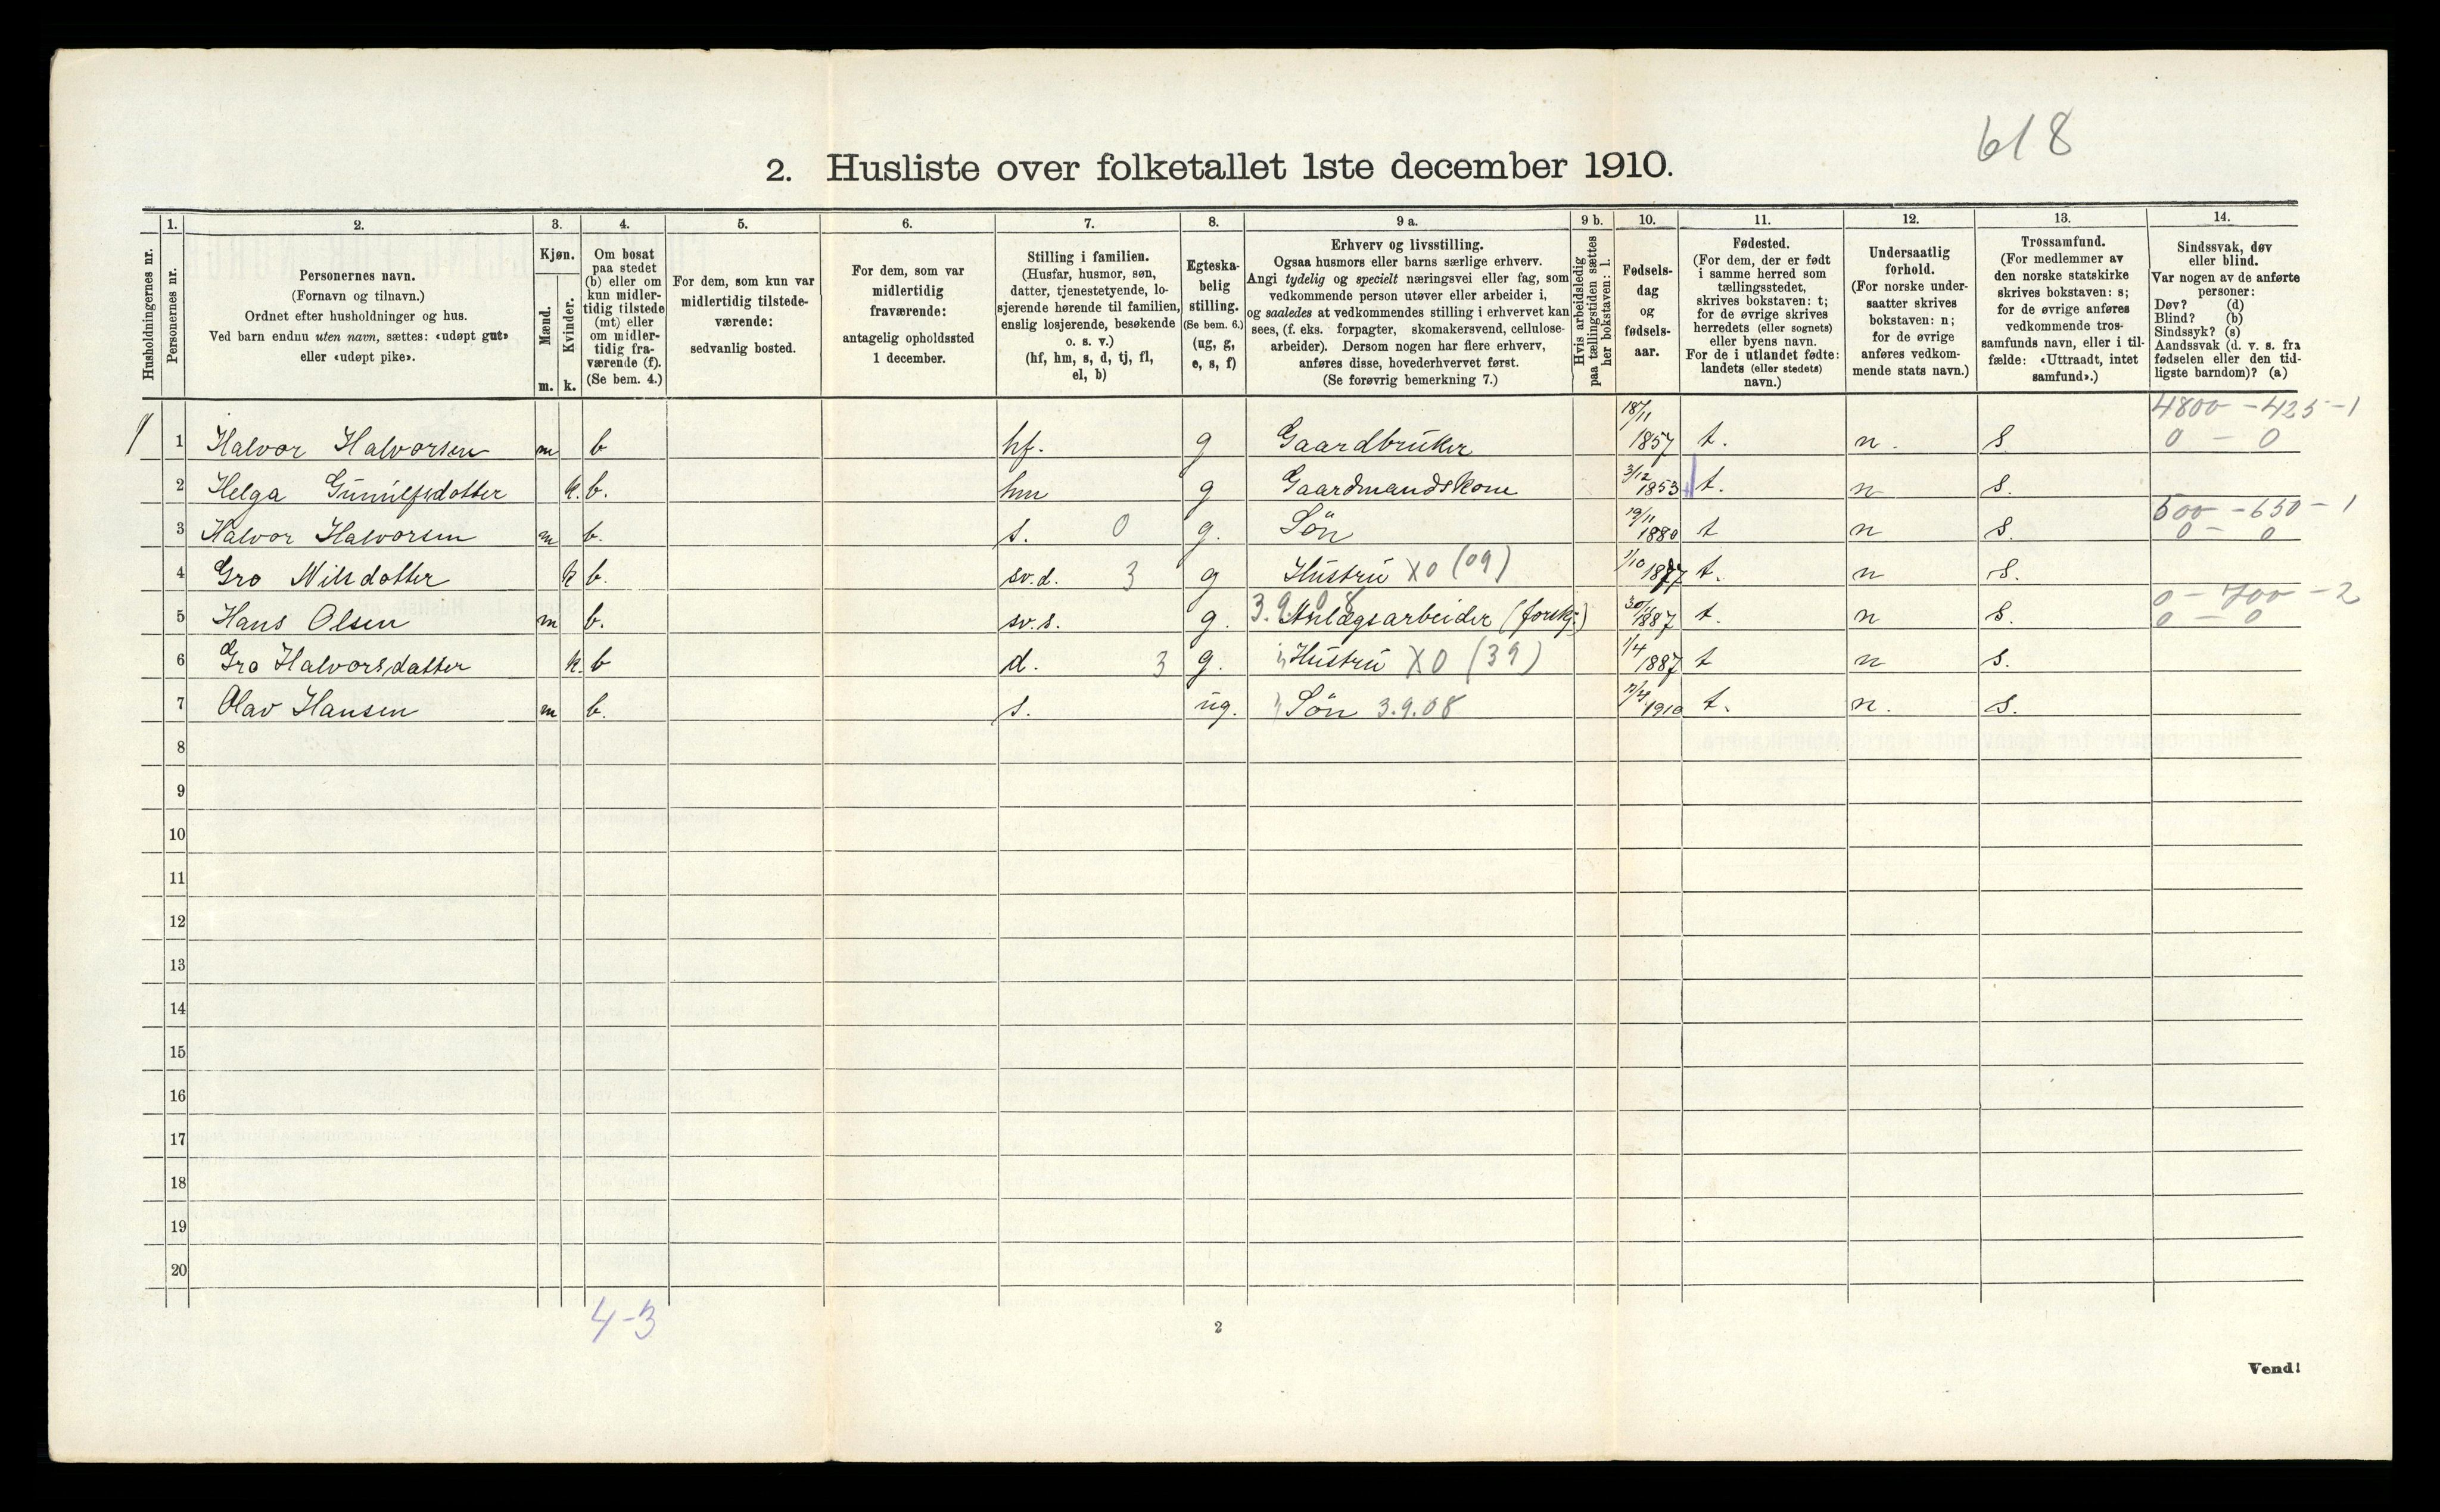 618
2. Husliste over folketallet 1ste december 1910.
Husholdningernes nr.
1.
Personernes nr.
2.
Personernes navn.
(Fornavn og tilnavn.)
Ordnet efter husholdninger og hus.
Ved barn endnu uten navn, sættes: «udøpt gut»
eller «udøpt pike».
3.
Kjøn.
Mænd.
Kvinder.
m. k.
4.
Om bosat
paa stedet
(b) eller om
kun midler-
tidig tilstede
(mt) eller
om midler-
tidig fra-
værende (f).
(Se bem. 4.)
5.
For dem, som kun var
midlertidig tilstede-
værende:
sedvanlig bosted.
6.
For dem, som var
midlertidig
fraværende:
antagelig opholdssted
1 december.
7.
Stilling i familien.
(Husfar, husmor, søn,
datter, tjenestetyende, lo-
sjerende hørende til familien,
enslig losjerende, besøkende
o. s. v.)
(hf, hm, s, d, tj, fl,
el, b)
8.
Egteska-
belig
stilling.
(Se bem. 6.)
(ug, g,
e, s, f)
9 a.
Erhverv og livsstilling.
Ogsaa husmors eller barns særlige erhverv.
Angi tydelig og specielt næringsvei eller fag, som
vedkommende person utøver eller arbeider i,
og saaledes at vedkommendes stilling i erhvervet kan
sees, (f. eks. forpagter, skomakersvend, cellulose-
arbeider). Dersom nogen har flere erhverv,
anføres disse, hovederhvervet først.
(Se forøvrig bemerkning 7.)
9 b.
Hvis arbeidsledig
paa tællingstiden sættes
her bokstaven: l.
10.
Fødsels-
dag
og
fødsels-
aar.
11.
Fødested.
(For dem, der er født
i samme herred som
tællingsstedet,
skrives bokstaven: t;
for de øvrige skrives
herredets (eller sognets)
eller byens navn.
For de i utlandet fødte:
landets (eller stedets)
navn.)
12.
Undersaatlig
forhold.
(For norske under-
saatter skrives
bokstaven: n;
for de øvrige
anføres vedkom-
mende stats navn.)
13.
Trossamfund.
(For medlemmer av
den norske statskirke
skrives bokstaven: s;
for de øvrige anføres
vedkommende tros-
samfunds navn, eller i til-
fælde: «Uttraadt, intet
samfund».)
14.
Sindssvak, døv
eller blind.
Var nogen av de anførte
personer:
Døv? (d)
Blind? (b)
Sindssyk? (s)
Aandssvak (d. v. s. fra
fødselen eller den tid-
ligste barndom)? (a)
4800 - 425 - 1
1 1 Halvor Halvorsen m b hf. g Gaardbruker 18/11 1857 t. n. s. 0 - 0
2 Helga Gunnulfsdotter k. b. hm g Gaardmandskone 3/12 1853 t. n s.
500 - 650 - 1
3 Halvor Halvorsen m b. s. 0 g. Sön 19/11 1880 t n s. 0 - 0
4 Gro Nilsdotter k b. sv.d. 3 g Hustru X0 (09) 1/10 1877 t. n s.
0 - 700 - 2
5 Hans Olsen m b. sv.s. g. 3.9.08 Anlægsarbeider (forskj.) 1887 t. n s. 0 - 0
6 Gro Halvorsdatter k. b d. 3 g. Hustru X0 (39) 1/4 1887 t n s.
7 Olav Hansen m b. s. ug. Sön 3.9.08 1910 t. n. s.
8
9
10
11
12
13
14
15
16
17
18
19
20
4-3
2
Vend!